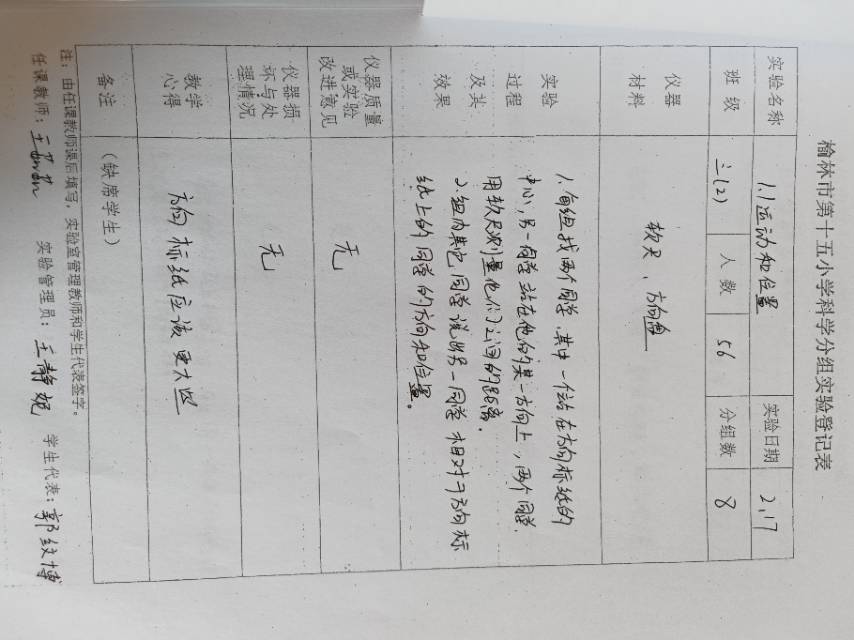 榆林市第十五小学科学分组实验登记表
实验名称 1.1运动和位置 实验日期 2.17
班级 三(2) 人数 56 分组数 8
仪器
材料
软尺、方向盘
实验
过程
及其
效果
1.每组找两个同学,其中一位站在方向标纸的
中心,另一同学站在他的某一方向上,两个同学
用软尺测量他们之间的距离.
2.组内其它同学说出另一同学相对于方向标
纸上的同学的方向和位置。
仪器质量
或实验
改进意见
无
仪器损
坏与处
理情况
无
教学
心得
方向标纸应该更大些
备注
(缺席学生)
注:由任课教师课后填写,实验室管理教师和学生代表签字。
任课教师: 实验管理员:王静妮 学生代表:郭纹博